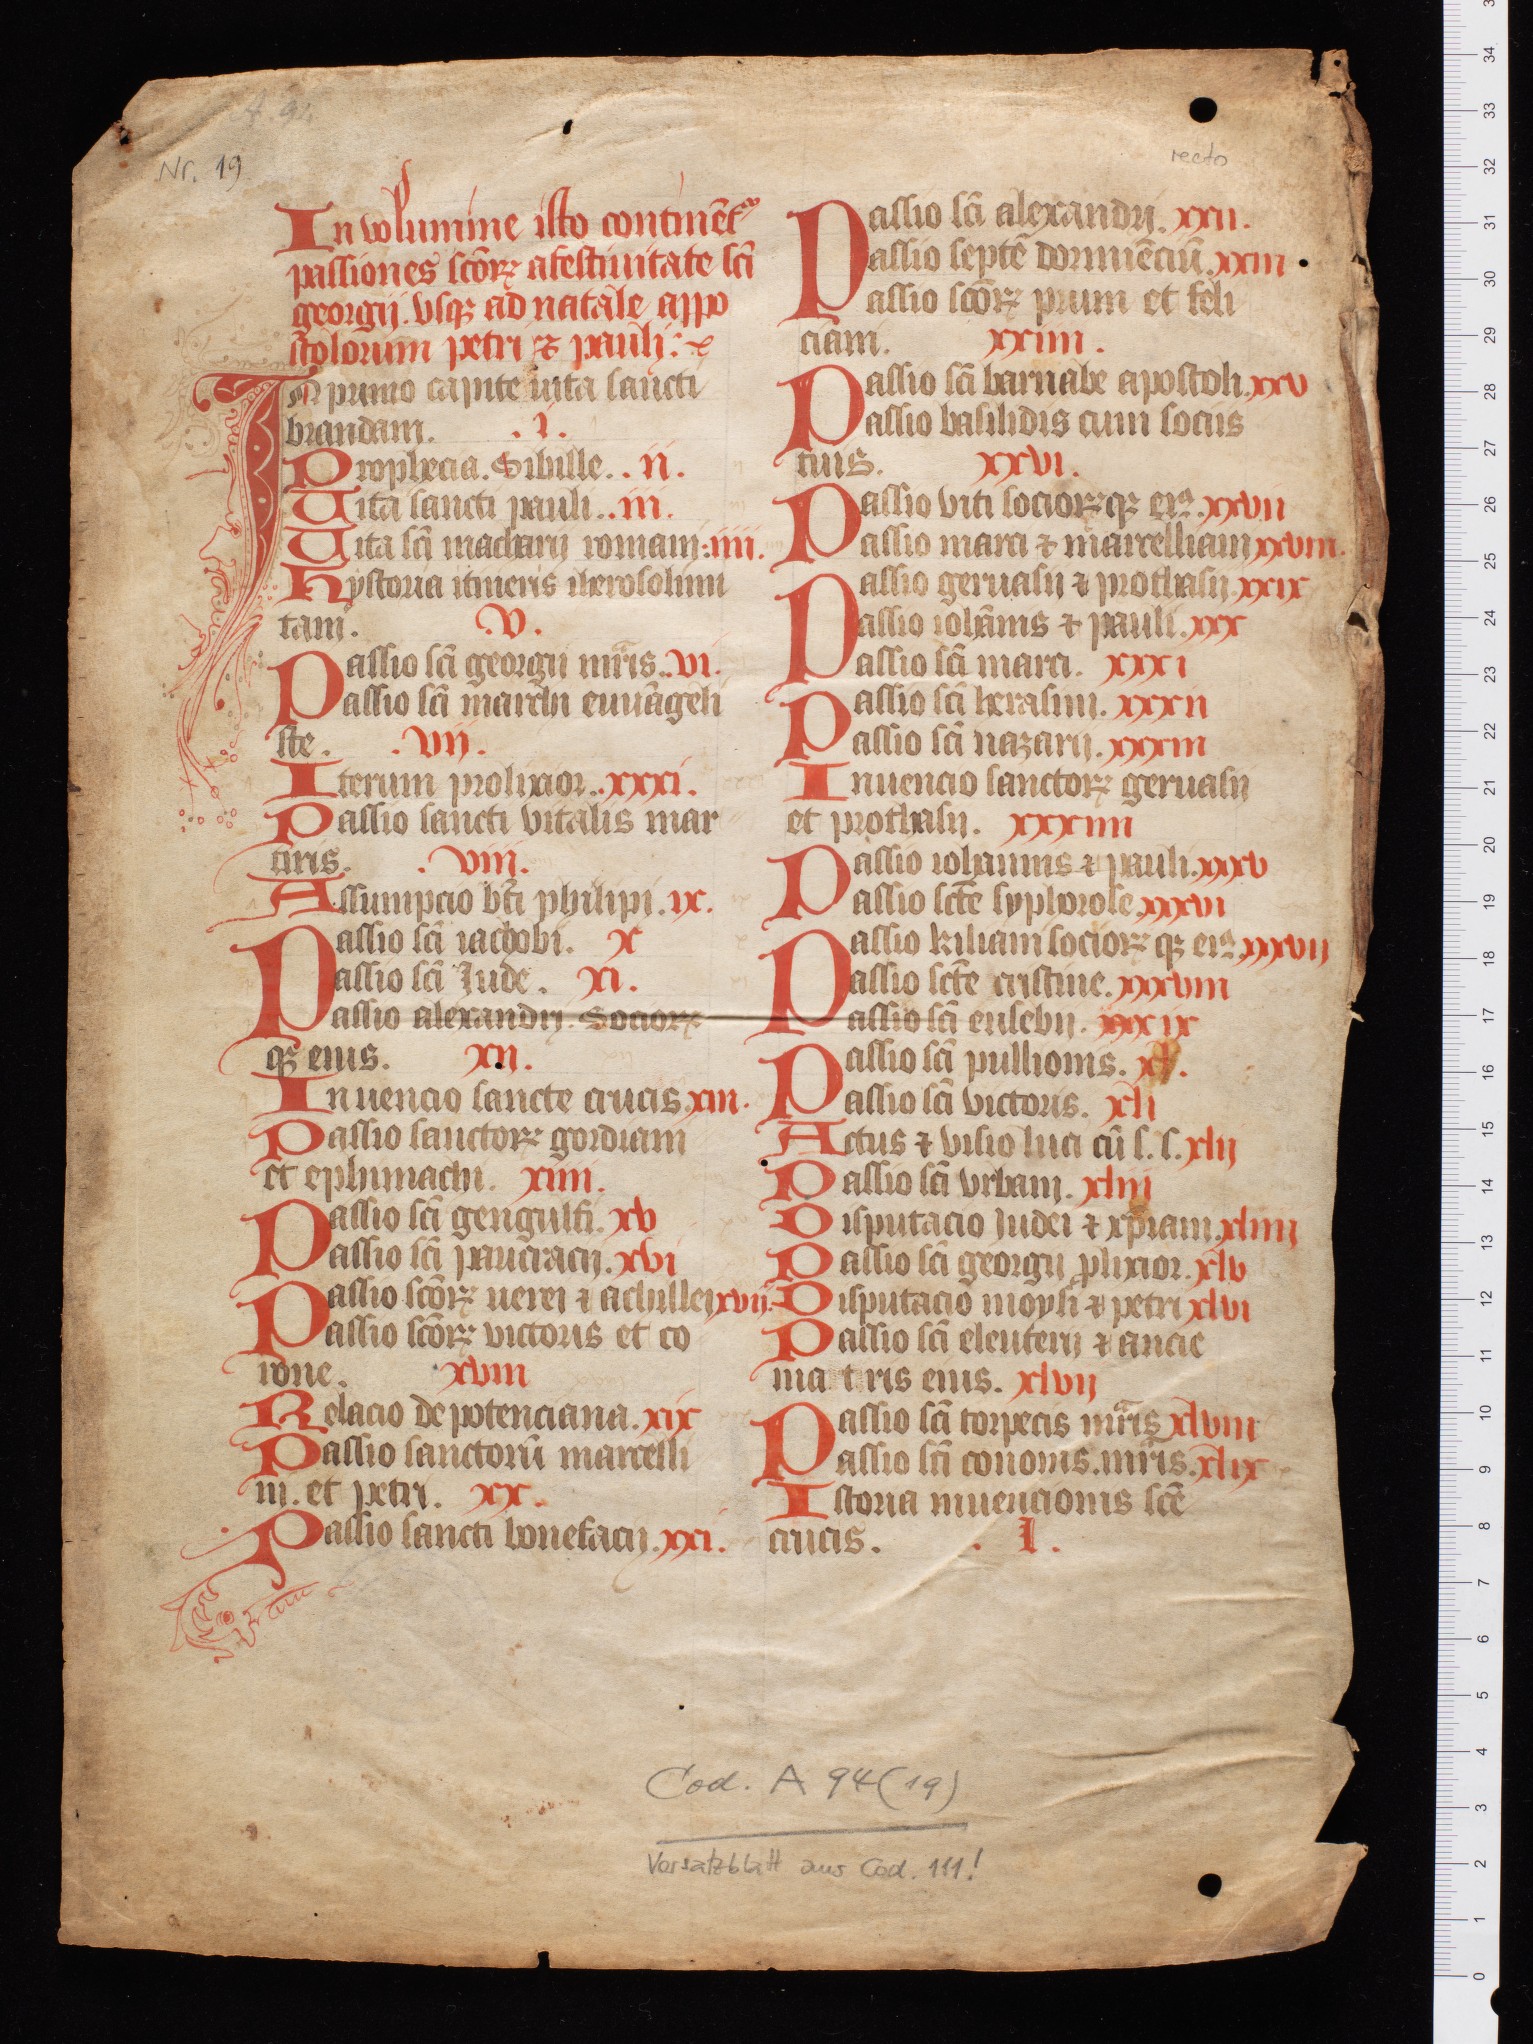 A. 94
Nr. 19
recto
In volumine isto continēt᷑
passiones scōrꝝ a festiuitate scī
georgij. vsqꝫ ad natale appo
stolorum petri ⁊ pauli:
In primo capite uita sancti
brandani. .i.
Prophecia. Sibille. .ii.
Uita sancti pauli. .iii.
Uita scī macharij romani: iiii.
Hystoria itineris iherosolimi
tani. .v.
Passio scī georgii mr̄is. .vi.
Passio scī marchi euuāgeli
ste. .vij.
Iterum prolixior. .xxxi.
Passio sancti vitalis mar
tiris. .viii.
Assumpcio bt̄i philipi. ix.
Passio scī iachobi. x
Passio scī Jude. xi.
Passio alexandrij. Sociorꝝ
qꝫ eius. xii.
Inuencio sancte crucis. xiii.
Passio sanctorꝝ gordiani
et ephimachi. xiiii.
Passio scī gengulfi. xv
Passio scī pancracij. xvi
Passio scōrꝝ nerei ⁊ achillei xvij.
Passio scōrꝝ victoris et co
rone. xviii
Relacio de potenciana. xix
Passio sanctorū marcelli
ni. et petri. xx.
Passio sancti bonefacij. xxi.
Passio scī alexandrij. xxii.
Passio septē dormiēciū. xxiii
Passio scōrꝝ primi et feli
ciani. xxiiii.
Passio scī barnabe apostoli. xxv
Passio basilidis cum sociis
suis. xxvi.
Passio viti sociorꝝqꝫ eiꝰ. xxvii
Passio marci ⁊ marcelliani xxviii.
Passio geruasii ⁊ prothasij. xxix
Passio iohānis ⁊ pauli. xxx
Passio scī marci. xxxi
Passio scī herasmi. xxxii
Passio scī nazarii. xxxiii
Inuencio sanctorꝝ geruasij
et prothasij. xxxiiii
Passio iohannis ⁊ pauli. xxxv
Passio sctē syphorose. xxxvi
Passio kiliani sociorꝝ qꝫ eiꝰ. xxxvii
Passio sctē cristine. xxxviii
Passio scī eusebij. xxxix
Passio scī pullionis. xl.
Passio scī victoris. xli
Actus ⁊ visio luci cū s. s. xlij
Passio scī vrbani. xliii
Disputacio Judei ⁊ xp̄iani. xliiii
Passio scī georgij ꝓlixior. xlv
Disputacio moysi ⁊ petri xlvi
Passio scī eleuterij ⁊ ancie
matris eius. xlvij
Passio scī torpetis mr̄is xlviii
Passio scī cononis. mr̄is. xlix
Istoria inuencionis scē
crucis. .l.
Cod. A 94 (19)
Vorsatzblatt aus Cod. 111!